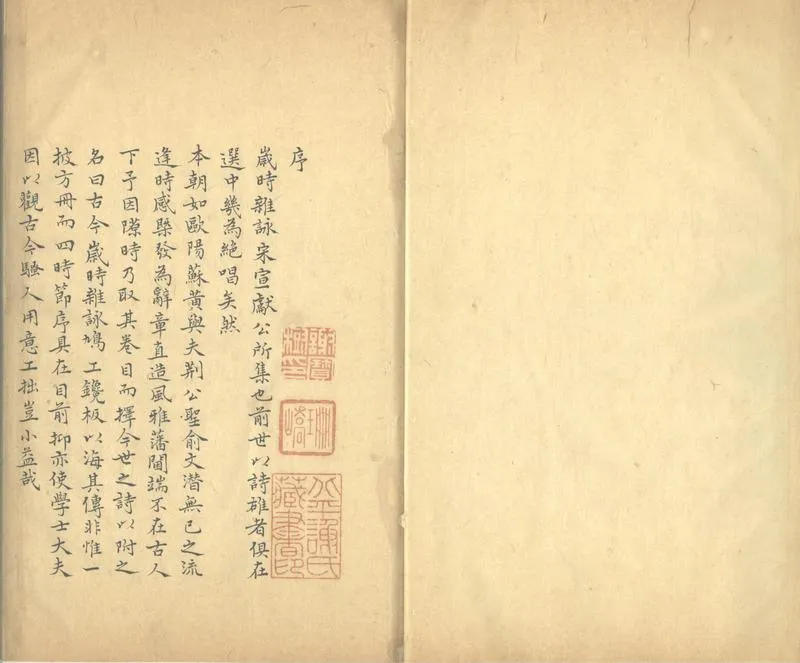 序
歲時雜詠宋宣獻公所集也前世以詩雄者俱在
選中幾為絕唱矣然
本朝如歐陽蘇黃與夫荆公聖俞文潛無已之流
逢時感槩發為辭章直造風雅藩閫端不在古人
下予因隙時乃取其卷目而擇今世之詩以附之
名曰古今歲時雜詠鳩工鑱板以海其傳非惟一
披方冊而四時節序具在目前抑亦使學士大夫
因以觀古今騷人用意工拙豈小益哉
謝寶樹印
珊嶠
北平謝氏藏書印